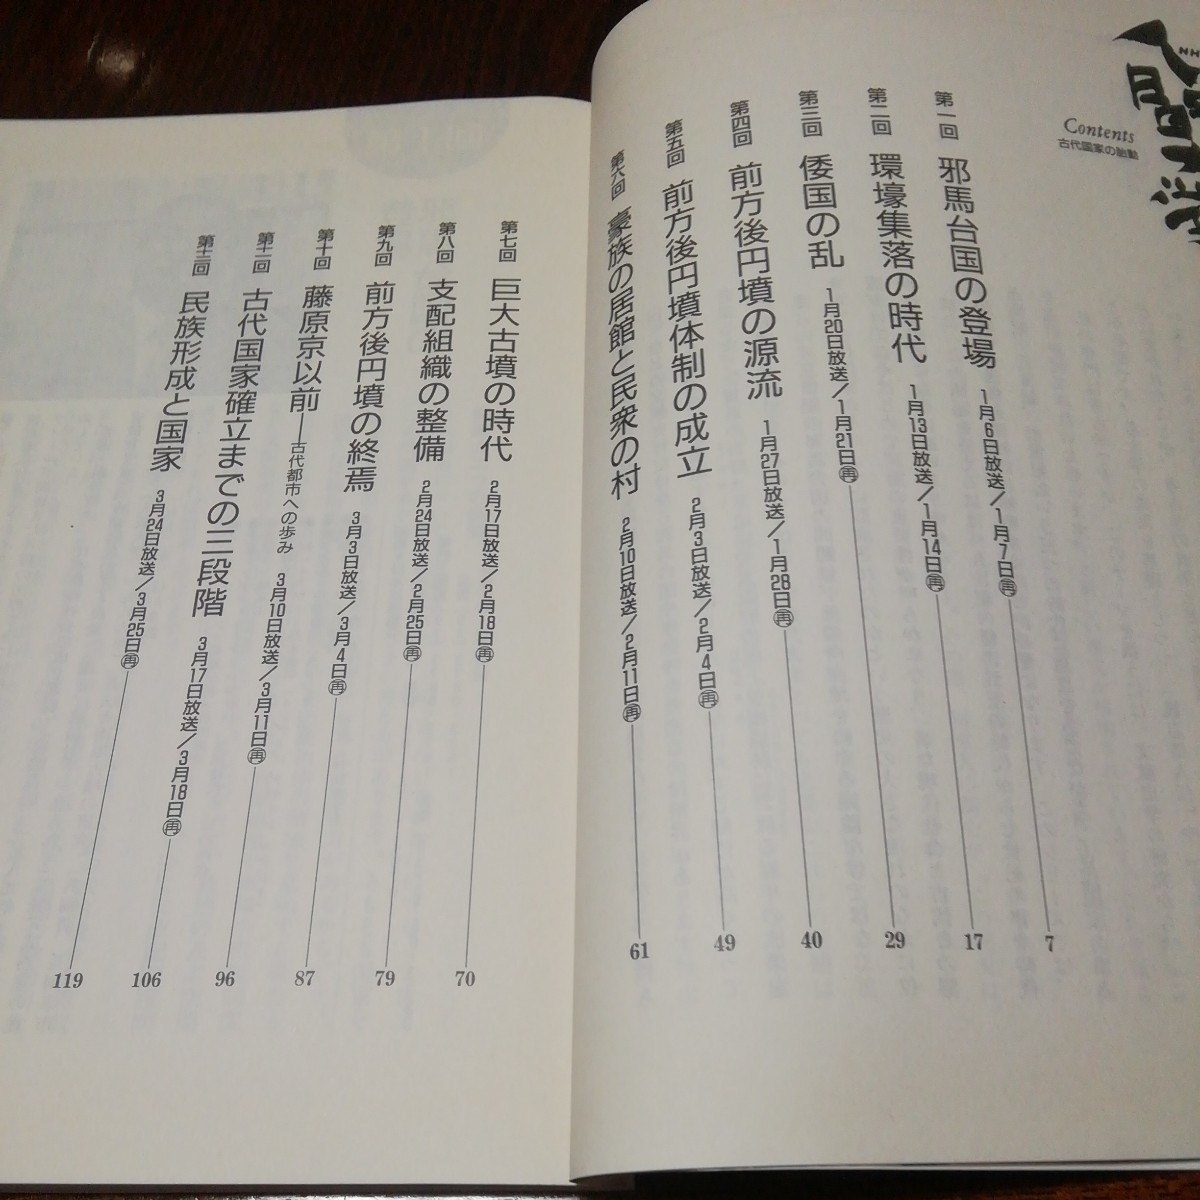 NH
人間大学
Contents
古代国家の胎動
第一回 邪馬台国の登場 1月6日放送/1月7日㊢ 7
第二回 環壕集落の時代 1月13日放送/1月14日再 17
第三回 倭国の乱 1月20日放送/1月21日再 29
第四回 前方後円墳の源流 1月27日放送/1月28日再 40
第五回 前方後円墳体制の成立 2月3日放送/2月4日再 49
第六回 豪族の居館と民衆の村 2月10日放送/2月11日再 61
第七回 巨大古墳の時代 2月17日放送/2月18日再 70
第八回 支配組織の整備 2月24日放送/2月25日再 79
第九回 前方後円墳の終焉 3月3日放送/3月4日再 87
第十回 藤原京以前――古代都市への歩み 3月10日放送/3月11日再 96
第十一回 古代国家確立までの三段階 3月17日放送/3月18日再 106
第十二回 民族形成と国家 3月24日放送/3月25日再 119